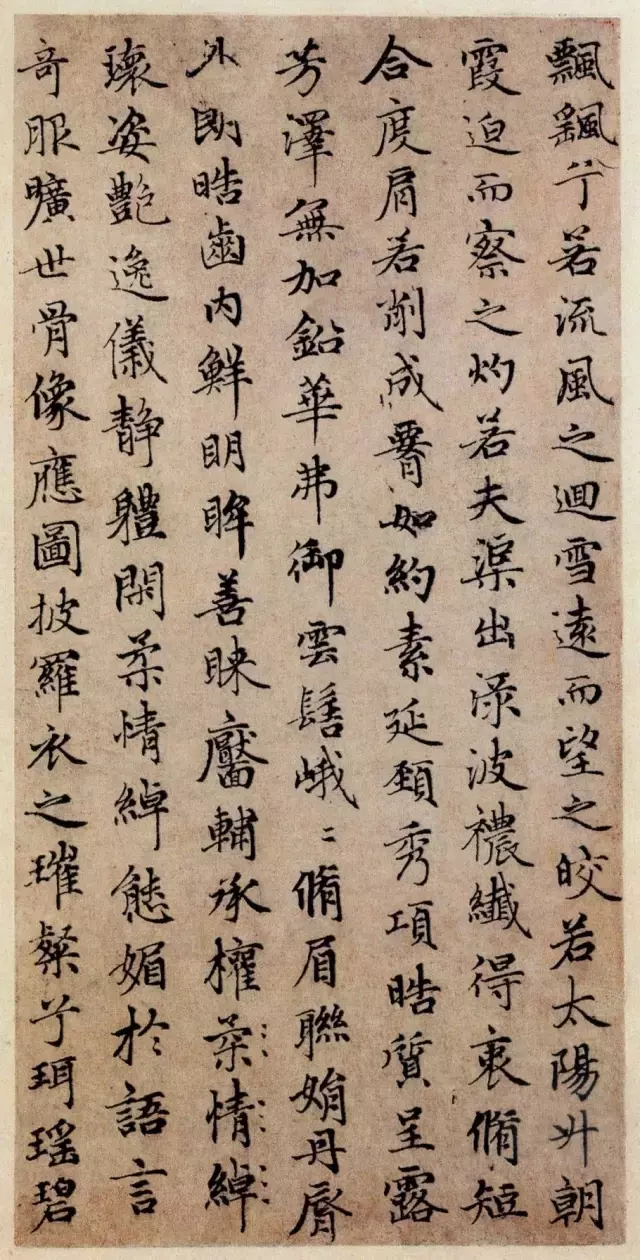 飄飖兮若流風之迴雪遠而望之皎若太陽升朝
霞迫而察之灼若夫渠出渌波襛纖得衷脩短
合度肩若削成要如約素延頸秀項晧質呈露
芳澤無加鉛華弗御雲髻峨〻脩眉聯娟丹脣
外朗晧齒內鮮明眸善睞靨輔承權柔情綽
瓌姿艷逸儀靜體閑柔情綽態媚於語言
奇服曠世骨像應圖披羅衣之璀粲兮珥瑤碧